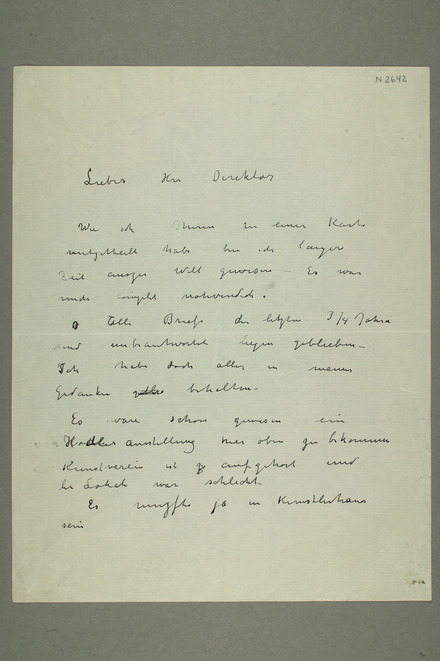 N 2642
Lieber Herr Direktor
Wie ich Ihnen in einer Karte
mitgetheilt habe bin ich längere
Zeit aus der Welt gewesen – Es war
nothwendich.
Alle Briefe der letzten 3/4 Jahre
sind unbeantwortet liegen geblieben –
Ich habe doch alles in meine
Gedanken behalten –
Es wäre schön gewesen ein
Hodler ausstellung hier oben zu bekommen
Kunstverein ist aufgehört und
Lokal war schlecht
Es müsste ja in Kunstlerhaus
sein